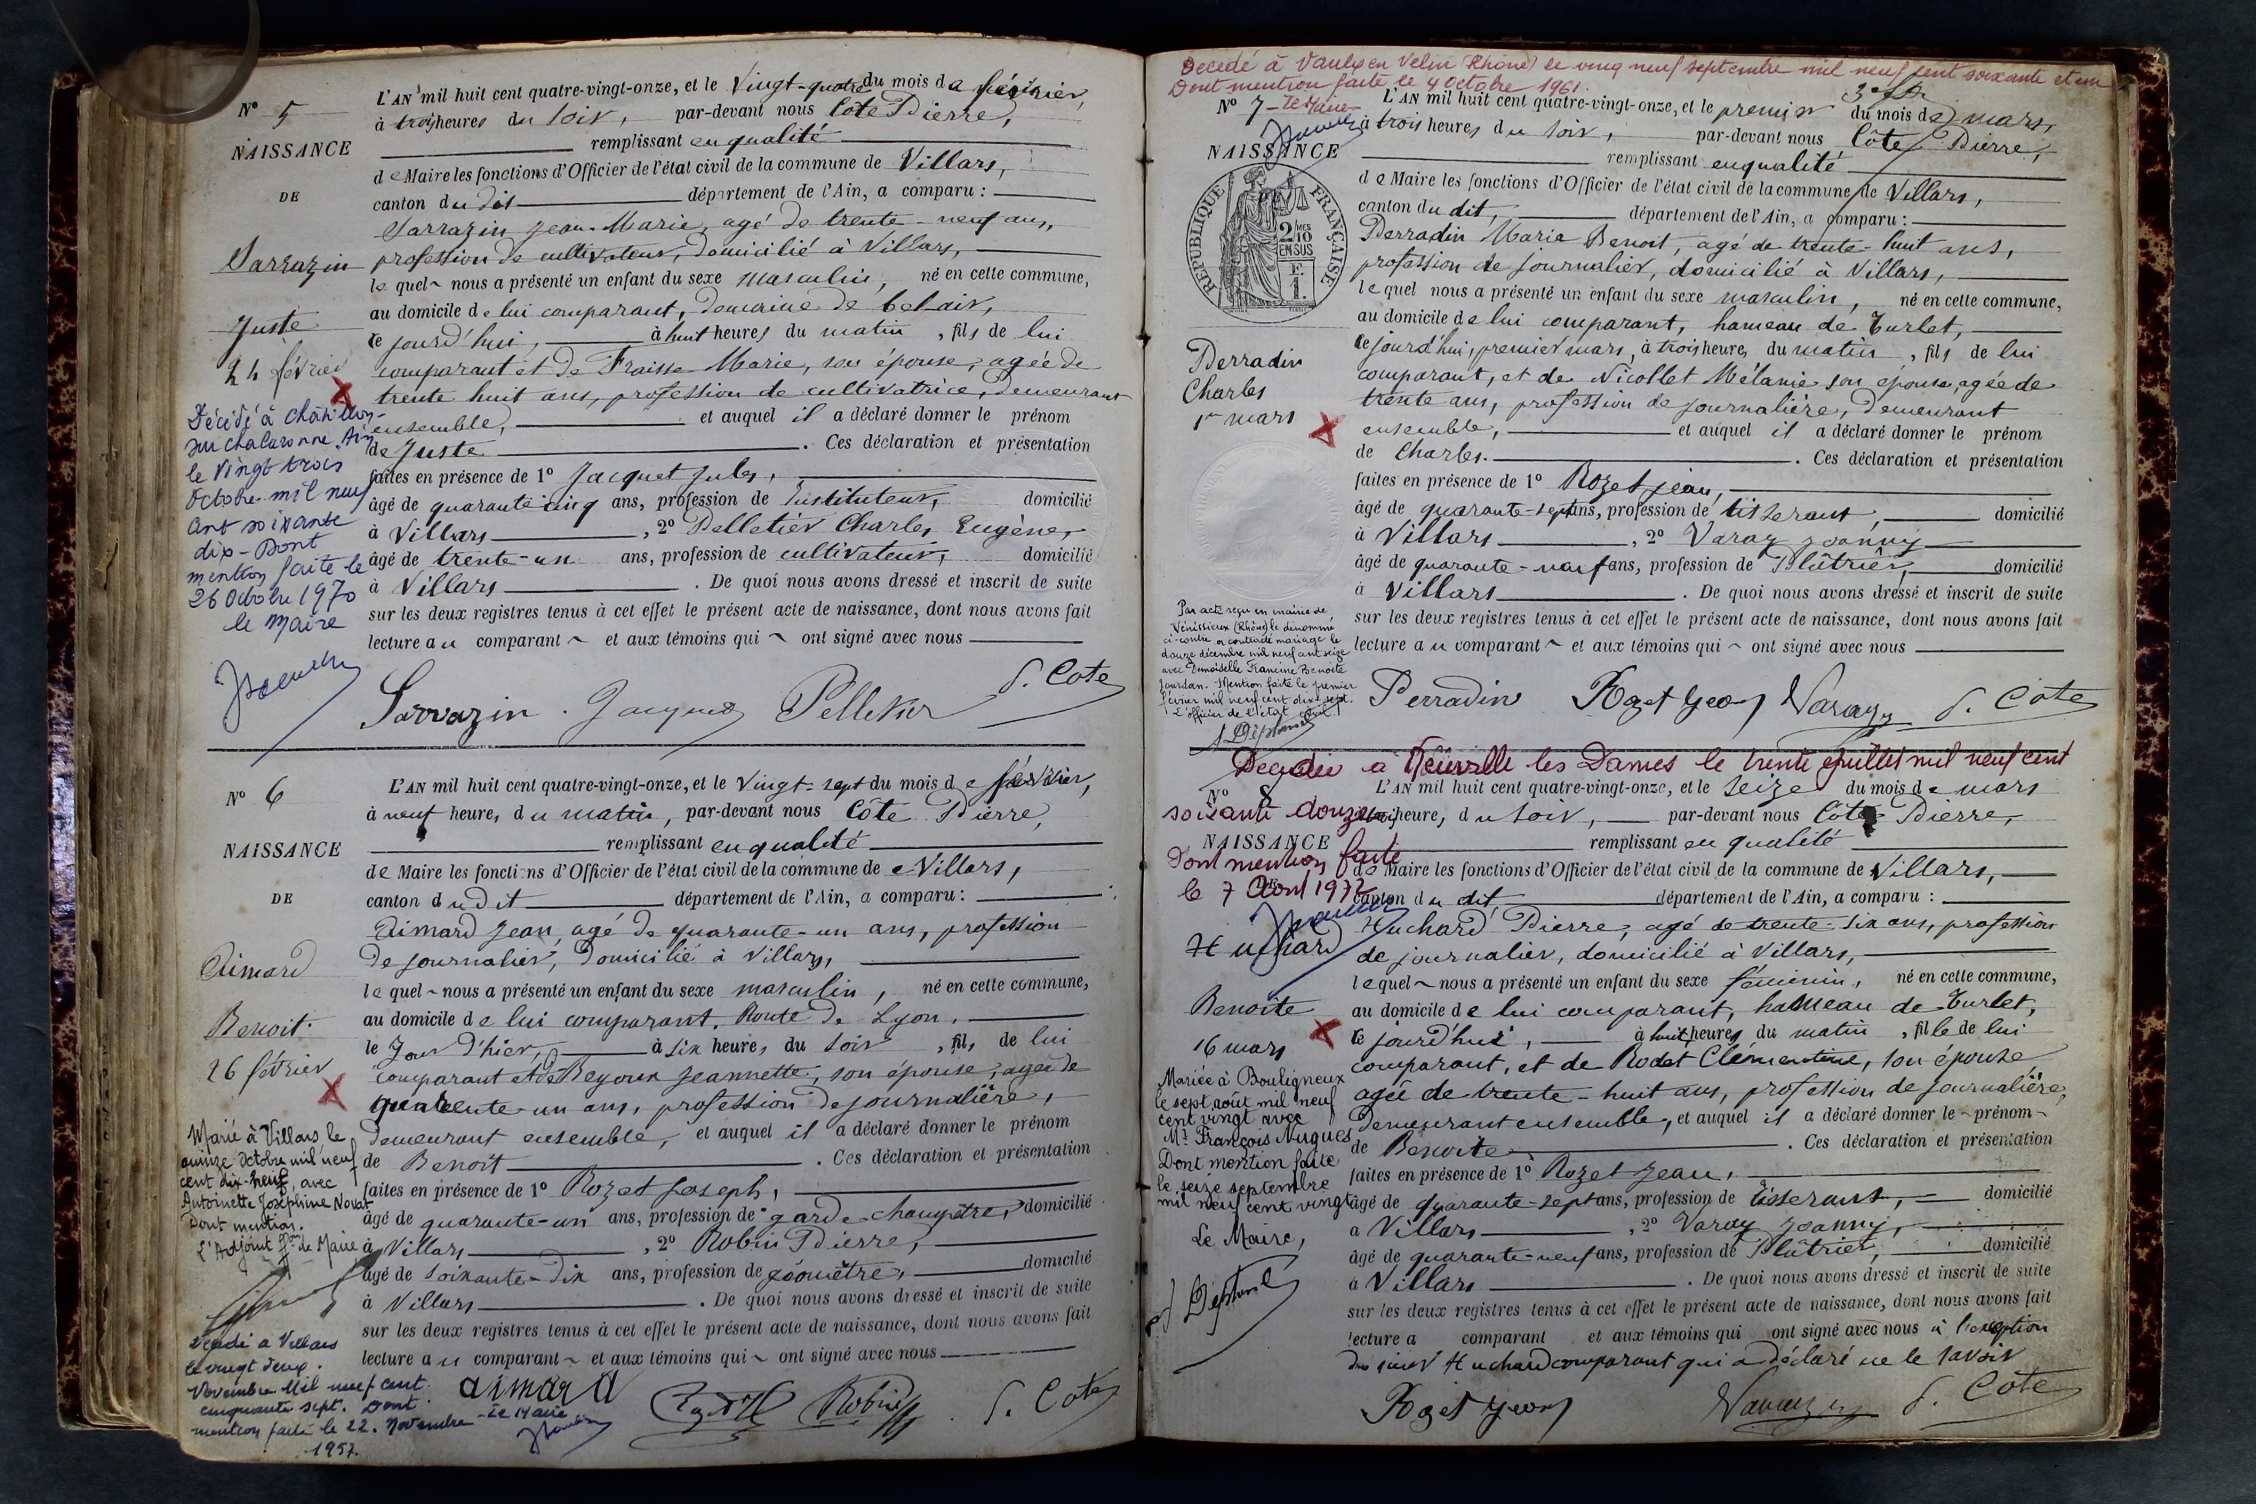 N° 5
NAISSANCE
DE
Sarrazin
Juste
24 février
Décédé à Châtillon-
sur Chalaronne Ain
le vingt trois
Octobre mil neuf
cent soixante
dix - Dont
mention faite le
26 Octobre 1970
le Maire
L'AN mil huit cent quatre-vingt-onze, et le Vingt-quatre du mois de février,
à trois heures du soir, par-devant nous Côte Pierre,
remplissant en qualité
de Maire les fonctions d'Officier de l'état civil de la commune de Villars,
canton du dit département de l'Ain, a comparu :
Sarrazin Jean-Marie, agé de trente-neuf ans,
profession de cultivateur, domicilié à Villars,
le quel nous a présenté un enfant du sexe masculin, né en cette commune,
au domicile de lui comparant, domaine de belair,
ce jourd'hui, à huit heures du matin, fils de lui
comparant et de Fraisse Marie, son épouse, agée de
trente huit ans, profession de cultivatrice, demeurant
ensemble, et auquel il a déclaré donner le prénom
de Juste . Ces déclaration et présentation
faites en présence de 1° Jacquet Jules,
âgé de quarante cinq ans, profession de Instituteur, domicilié
à Villars , 2° Pelletier Charles Eugène,
âgé de trente-un ans, profession de cultivateur, domicilié
à Villars . De quoi nous avons dressé et inscrit de suite
sur les deux registres tenus à cet effet le présent acte de naissance, dont nous avons fait
lecture au comparant et aux témoins qui ont signé avec nous
Sarrazin. Jacquet Pelletier P. Cote
N° 6
NAISSANCE
DE
Aimard
Benoit.
26 février
Marié à Villars le
onze octobre mil neuf
cent dix-neuf, avec
Antoinette Joséphine Novat
Dont mention.
L'Adjoint ff. de Maire
Décédé à Villars
le vingt deux.
Novembre Mil neuf cent.
cinquante sept. Dont
mention faite le 22. Novembre
1957.
Le Maire
L'AN mil huit cent quatre-vingt-onze, et le vingt-sept du mois de février,
à neuf heures du matin, par-devant nous Côte Pierre,
remplissant en qualité
de Maire les fonctions d'Officier de l'état civil de la commune de Villars,
canton du dit département de l'Ain, a comparu :
Aimard Jean, agé de quarante-un ans, profession
de journalier, domicilié à Villars,
le quel nous a présenté un enfant du sexe masculin, né en cette commune,
au domicile de lui comparant, Route de Lyon,
le jour d'hier, à six heures du soir, fils de lui
comparant et de Jeannette, son épouse, agée de
quarante-un ans, profession de journalière,
demeurant ensemble, et auquel il a déclaré donner le prénom
de Benoit . Ces déclaration et présentation
faites en présence de 1° Rozet Joseph,
âgé de quarante-un ans, profession de garde-champêtre, domicilié
à Villars , 2° Robin Pierre,
âgé de soixante-dix ans, profession de géomètre, domicilié
à Villars . De quoi nous avons dressé et inscrit de suite
sur les deux registres tenus à cet effet le présent acte de naissance, dont nous avons fait
lecture au comparant et aux témoins qui ont signé avec nous
aimard Robin P. Cote
Décédé à Vaulx en Velin (Rhône) le vingt neuf septembre mil neuf cent soixante et un
Dont mention faite le 4 Octobre 1961.
Le Maire
N° 7
NAISSANCE
RÉPUBLIQUE FRANÇAISE
2/10MES EN SUS
1F.
Perradin
Charles
1er mars
Par acte reçu en mairie de
Vénissieux (Rhône) le dénommé
ci-contre a contracté mariage le
douze décembre mil neuf cent seize
avec Demoiselle Francine Benoite
Jourdan. Mention faite le premier
février mil neuf cent dix-sept.
L'officier de l'état civil
L'AN mil huit cent quatre-vingt-onze, et le premier du mois de mars,
à trois heures du soir, par-devant nous Côte Pierre,
remplissant en qualité
de Maire les fonctions d'Officier de l'état civil de la commune de Villars,
canton du dit, département de l'Ain, a comparu :
Perradin Marie Benoit, agé de trente-huit ans,
profession de journalier, domicilié à Villars,
le quel nous a présenté un enfant du sexe masculin, né en cette commune,
au domicile de lui comparant, hameau de Turlet,
ce jourd'hui, premier mars, à trois heures du matin, fils de lui
comparant, et de Nicollet Mélanie son épouse, agée de
trente ans, profession de journalière, demeurant
ensemble, et auquel il a déclaré donner le prénom
de Charles. . Ces déclaration et présentation
faites en présence de 1° Rozet jean,
âgé de quarante-sept ans, profession de tisserant, domicilié
à Villars , 2° Varay Joanny
âgé de quarante-neuf ans, profession de Plâtrier, domicilié
à Villars . De quoi nous avons dressé et inscrit de suite
sur les deux registres tenus à cet effet le présent acte de naissance, dont nous avons fait
lecture au comparant et aux témoins qui ont signé avec nous
Perradin Rozet Jean Varay P. Cote
Décédée à Neuville les Dames le trente juillet mil neuf cent
soixante douze
Dont mention faite
le 7 Août 1972
N° 8
NAISSANCE
DE
Huchard
Benoite
16 mars
Mariée à Bouligneux
le sept août mil neuf
cent vingt avec
Mr François Nugues
Dont mention faite
le seize septembre
mil neuf cent vingt
Le Maire,
L'AN mil huit cent quatre-vingt-onze, et le seize du mois de mars
heures du soir, par-devant nous Côte Pierre,
remplissant en qualité
de Maire les fonctions d'Officier de l'état civil de la commune de Villars,
canton du dit, département de l'Ain, a comparu :
Huchard Pierre, agé de trente-six ans, profession
de journalier, domicilié à Villars,
lequel nous a présenté un enfant du sexe féminin, né en cette commune,
au domicile de lui comparant, hameau de Turlet,
ce jourd'hui, à huit heures du matin, fille de lui
comparant, et de Rodet Clémentine, son épouse
agée de trente-huit ans, profession de journalière,
demeurant ensemble, et auquel il a déclaré donner le prénom
de Benoite . Ces déclaration et présentation
faites en présence de 1° Rozet Jean,
âgé de quarante-sept ans, profession de tisserant, domicilié
à Villars , 2° Varay Joanny,
âgé de quarante-neuf ans, profession de Plâtrier, domicilié
à Villars . De quoi nous avons dressé et inscrit de suite
sur les deux registres tenus à cet effet le présent acte de naissance, dont nous avons fait
lecture a comparant et aux témoins qui ont signé avec nous à l'exception
du sieur Huchard comparant qui a déclaré ne le savoir
Rozet Jean Varay P. Cote